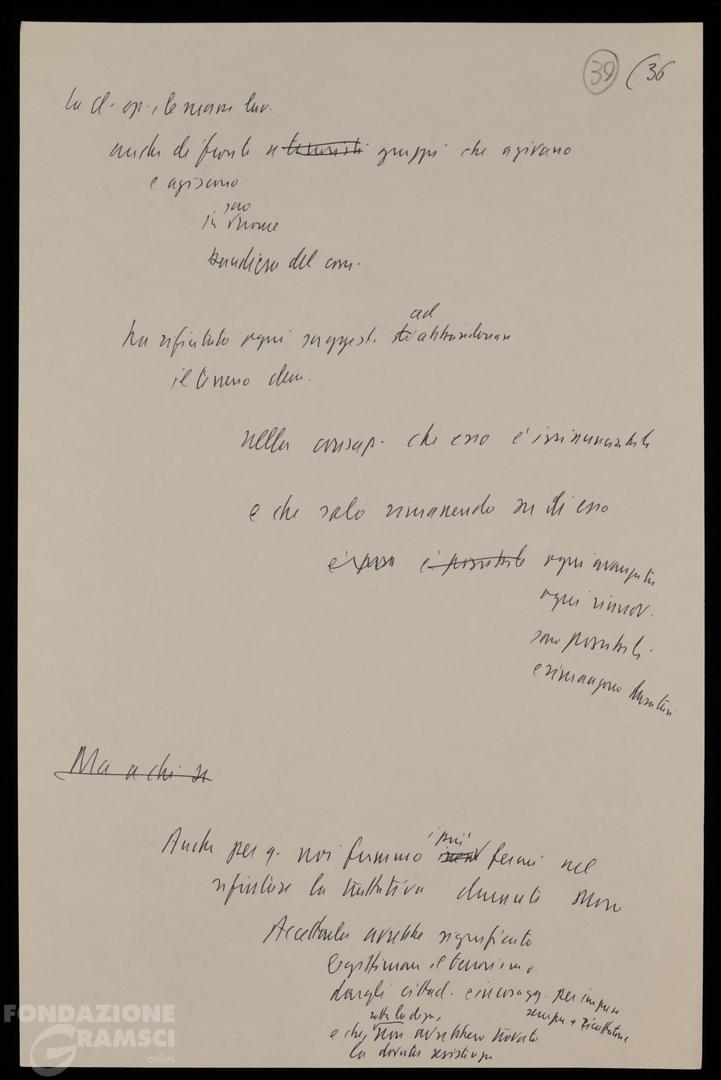 39 (36
La cl. op. e le masse lav.
anche di fronte a terroristi gruppi che agivano
e agiscono
in suo nome
bandiera del com.
ha rifiutato ogni suggest. ad abbandonare
il terreno dem.
nella consap. che esso è irrinunciabile
e che solo rimanendo su di esso
è possibile ogni avanzata
ogni rinnov.
sono possibili.
e rimangono
Ma a chi si
Anche per q. noi fummo i più fermi nel
rifiutare la trattativa durante Moro
Accettarla avrebbe significato
legittimare il terrorismo
dargli cittad. e incoragg. per imprese
sempre +
e che non avrebbero trovato
la dovuta resistenza
FONDAZIONE
GRAMSCI
onlus